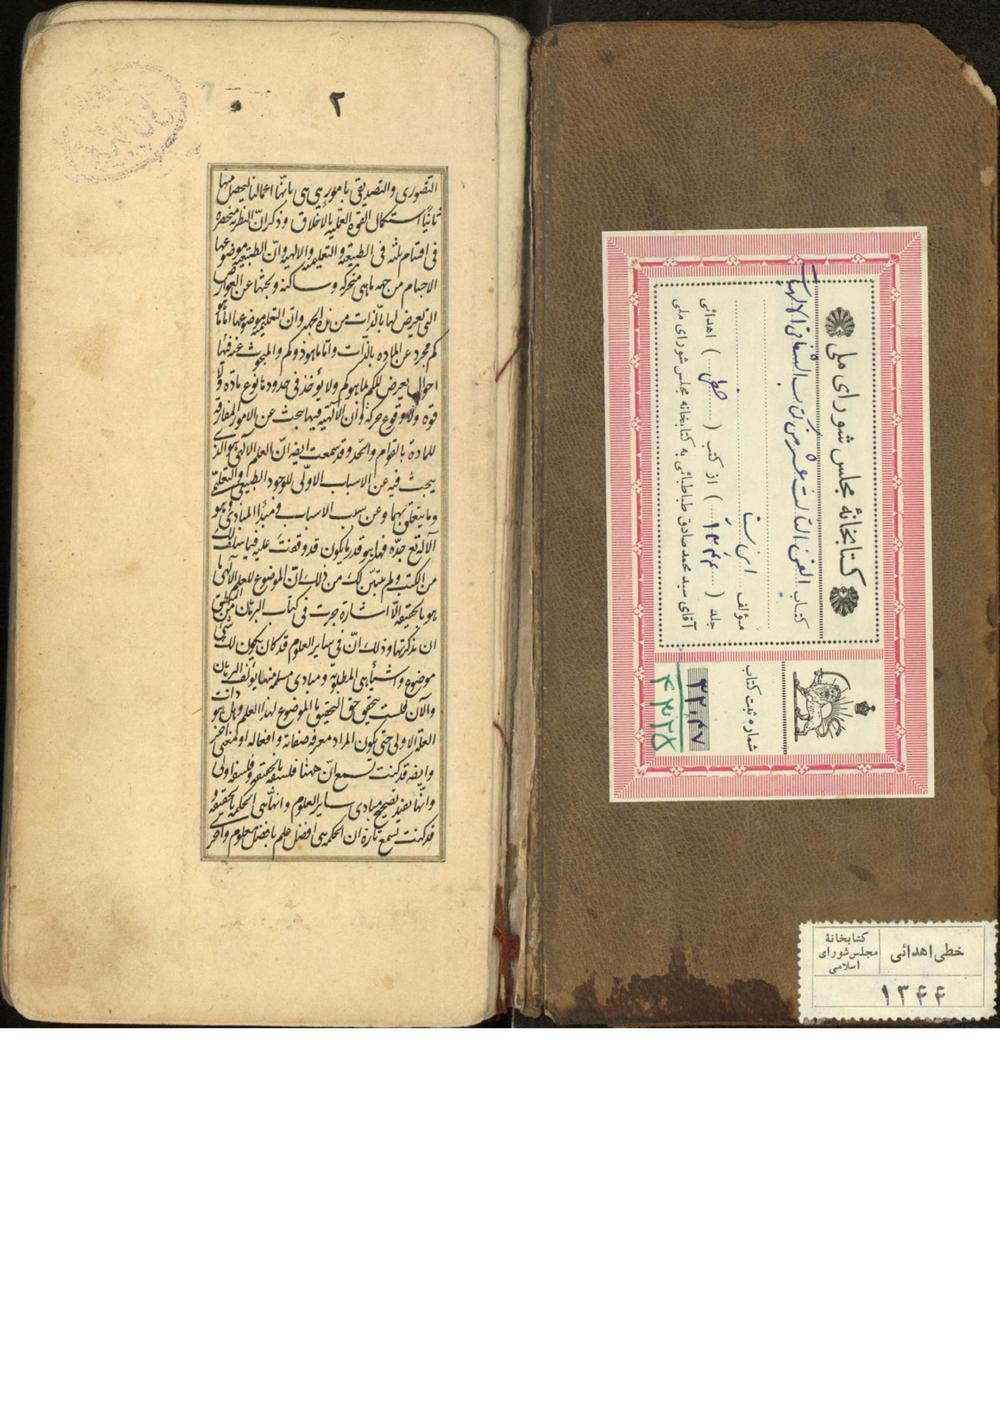 ٢
التصوری والتصدیقی بامور هی هی بانها اعمالنا لیحصل منها
ثانیا استکمال القوة العملیة بالاخلاق وذکر ان النظریة منحصرة
فی اقسام ثلثة فی الطبیعیة والتعلیمیة والالهیة وان الطبیعیة موضوعها
الاجسام من جهة ما هی متحرکة وساکنة وبحثها عن العوارض
التی تعرض لها بالذات من هذه الجهة وان التعلیمیة موضوعها اما ما هو
کم مجرد عن المادة بالذات واما ما هو ذو کم والمبحوث عنه فیها
احوال تعرض للکم بما هو کم ولا یؤخذ فی حدودها نوع مادة ولا
قوة ولا حرکة وان الالهیة فیها یبحث عن الامور المفارقة
للمادة بالقوام والحد وقد سمعت ایضه ان العلم الالهی هو الذی
یبحث فیه عن الاسباب الاولی للوجود الطبیعی والتعلیمی
وما یتعلق بهما وعن سبب الاسباب ومبدأ المبادی وهو
الاله تع جده فهذا هو قدر ما یکون قد وقفت علیه فیما سلف لک
من الکتب ولم یتبین لک من ذلک ان الموضوع للعلم الالهی ما
هو بالحقیقة الا اشارة جرت فی کتاب البرهان من المنطق
ان تذکرتها وذلک ان فی سایر العلوم قد کان یکون لک شئ
موضوع واشیاء هی المطلوبة ومبادی مسلمة منها یؤلف البرهان
والآن فلست تحقق حق التحقیق ما الموضوع لهذا العلم وهل هو ذات
العلة الاولی حتی یکون المراد معرفة صفاته وافعاله او معنی آخر
وایضه قد کنت تسمع ان ههنا فلسفة بالحقیقة وفلسفة اولی
وانها تفید تصحیح مبادی سایر العلوم وانها هی الحکمة بالحقیقة و
قد کنت تسمع تارة ان الحکمة هی افضل علم بافضل معلوم واخر
کتابخانهٔ مجلس شورای ملی
کتاب الفن الثالث عشر من کتاب الشفا فی الالهیات
مؤلف ابن سینا
جلد (۱۳۴۴) از کتب (خطی) اهدائی
آقای سید محمد صادق طباطبائی به کتابخانه مجلس شورای ملی
شماره ثبت کتاب
۳۳۰۴۷
۴۳۳۵
کتابخانهٔ
مجلس شورای
اسلامی
خطی اهدائی
۱۳۴۴